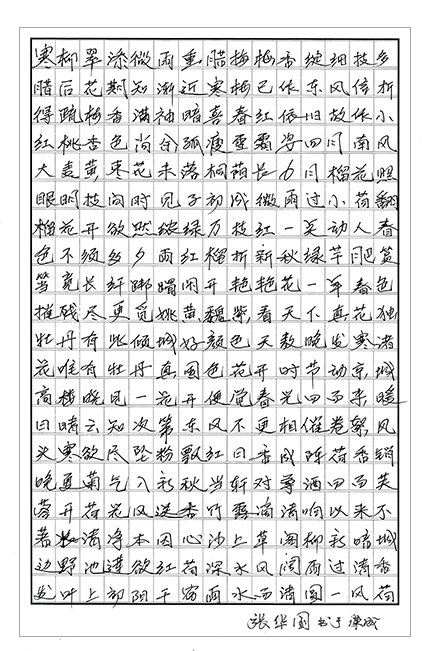 寒柳翠添微雨重腊梅梅香绽细枝多
腊后花期知渐近寒梅已作东风信折
得疏梅香满袖暗喜春红依旧故作小
红桃杏色尚余孤瘦雪霜姿四月南风
大麦黄枣花未落桐荫长五月榴花照
眼明枝间时见子初成微雨过小荷翻
榴花开欲然绽绿万枝红一点动人春
色不须多夕雨红榴折新秋绿芋肥篮
笃竟长纤脚踯躅闲开艳艳花一年春色
摧残尽更觅姚黄魏紫看天下真花独
牡丹有此倾城好颜色天教晚发赛诸
花唯有牡丹真国色花开时节动京城
高楼晓见一花开便觉春光四面来暖
日晴云知次第东风不更相催卷絮风
头寒欲尽坠粉飘红日香成阵荷香销
晚夏菊气入新秋当轩对尊酒四面芙
蓉开荷花风送香竹露滴清响以来不
著水清净本因心沙上草阁柳新暗城
边野池莲欲红荷深水风阔雨过清香
发叶上初阳干宿雨水面清圆一风荷
张华国书于荣成